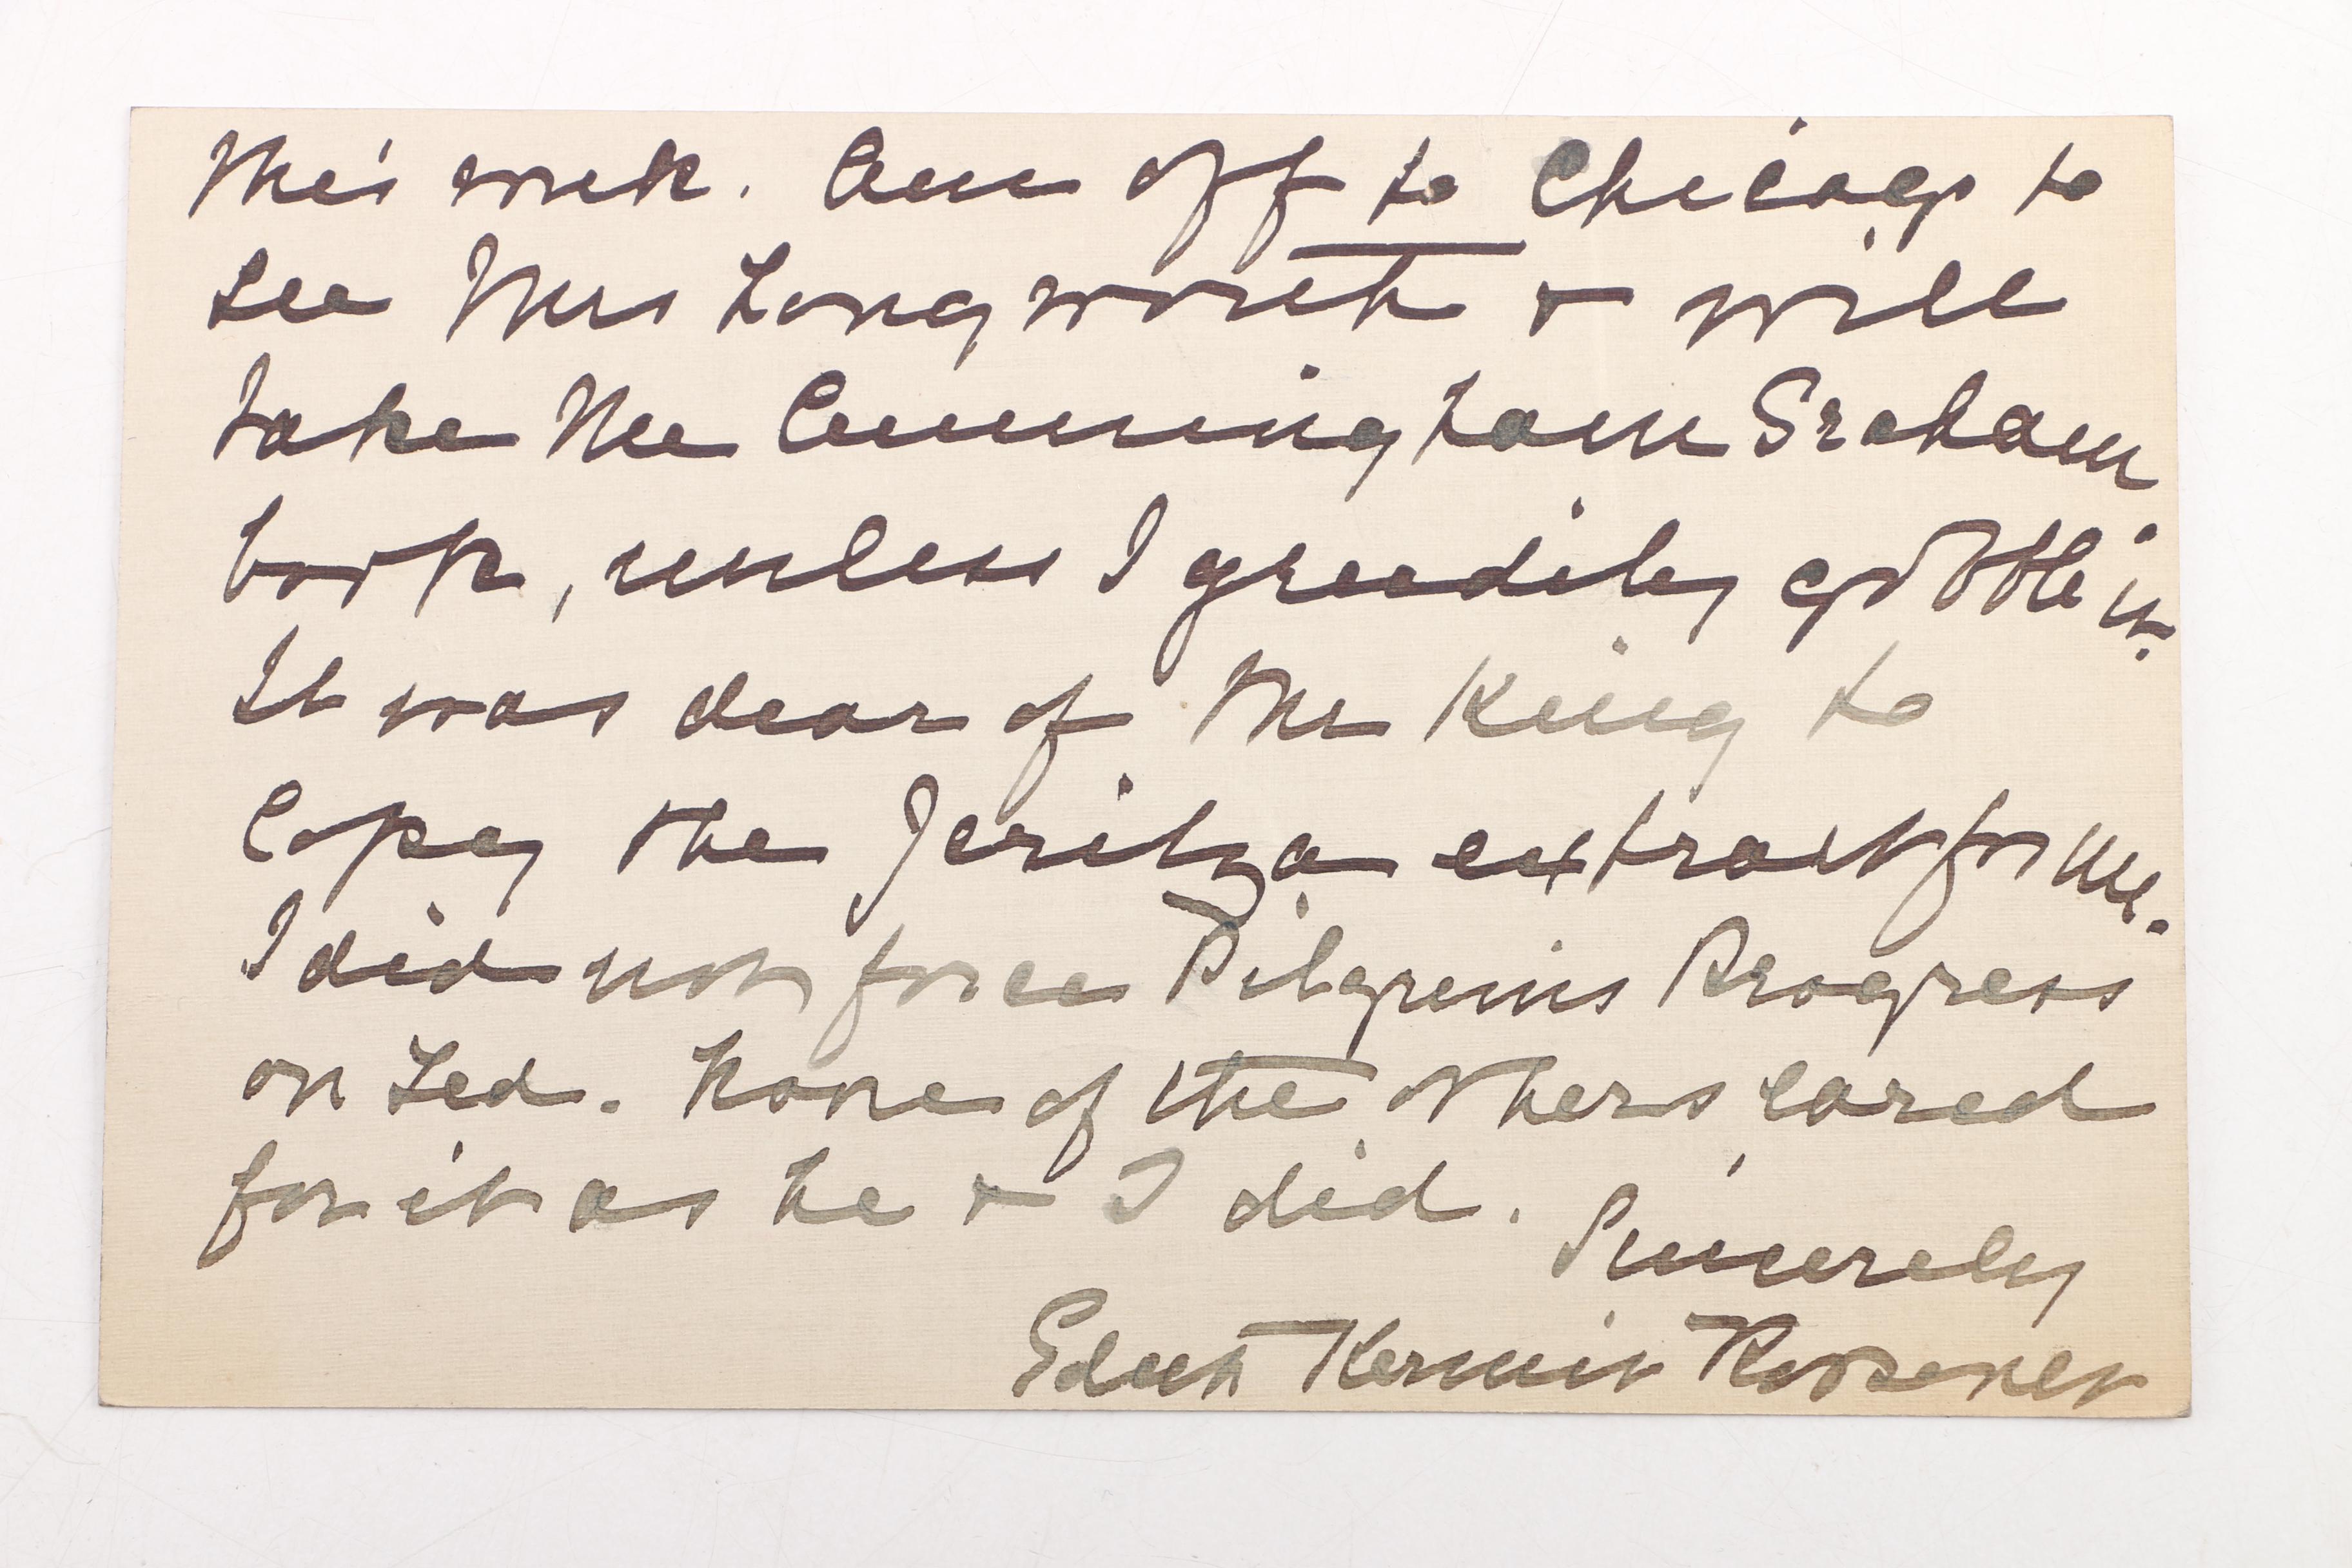 this week. Am off to Chicago to
see Mrs Longworth & will
take the Cunninghame Graham
book, unless I greedily gobble it.
It was dear of Mr King to
copy the Jeritza extract for me.
I did not force Pilgrims Progress
on Ted. None of the others cared
for it as he & I did.
Sincerely
Edith Kermit Roosevelt